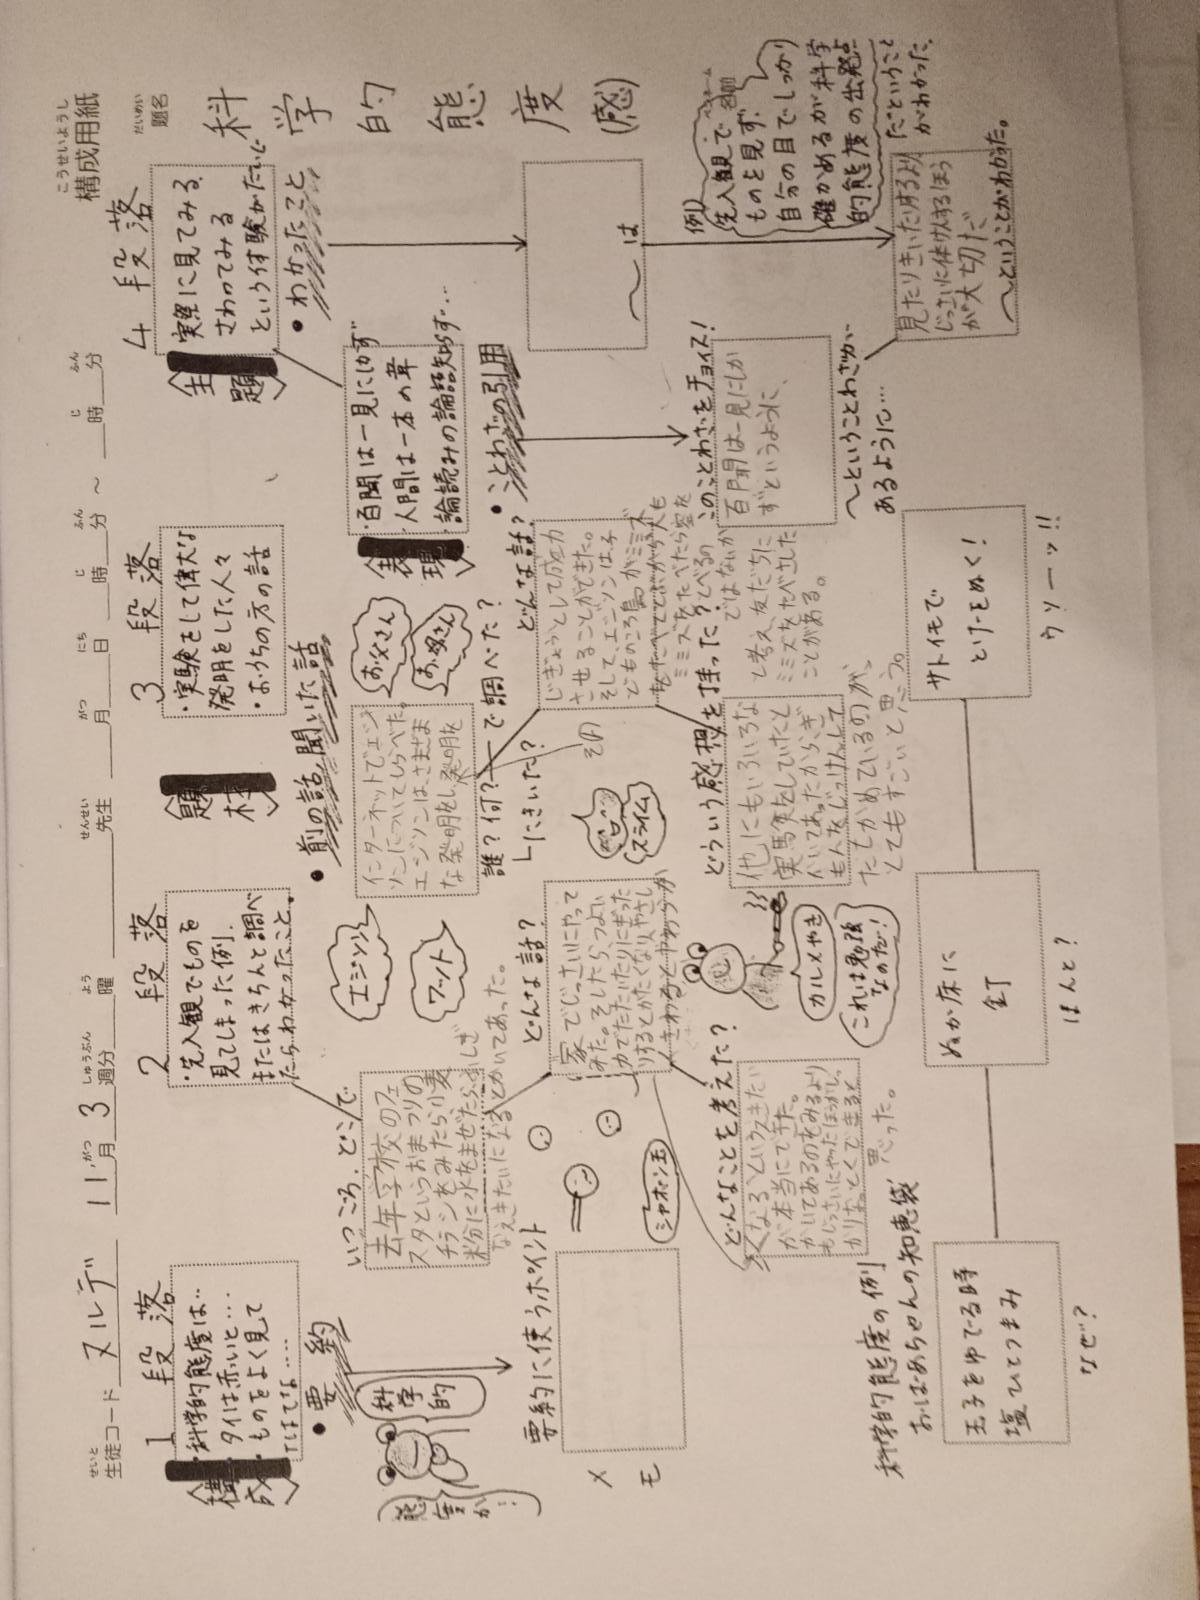 構成用紙
こうせいようし
題名
だいめい
科学的態度(感)
生徒コード ヌルデ 11月 3 週分 曜 先生 月 日 時 分 ～ 時 分
1段落
構成
・科学的態度は…
タイは赤いと…
・ものをよく見て
たはてな……
・要約
科学的
態度か…
要約に使うポイント
メモ
2段落
・先入観でものを
見てしまった例、
またはきちんと調べ
たらわかったこと。
いつごろ、どこで
去年学校のフェ
スタというおまつりの
チラシをみたら、小麦
粉分に水をまぜたらふしぎ
なえきたいになるとかいてあった。
どんな話?
家でじっさいにやって
みた。そしたら、つよい
力でたたいたりにぎった
りするとかたくなりやさし
くさわるとやわらか
どんなことを考えた?
くなるというえきたい
が本当にできた。
かいてあるのをみるより
もじっさいにやったほうがし
かりなっとくできると
思った。
シャボン玉
スライム
カルメやき
これは勉強
なのだ!
3段落
題材
・実験をして偉大な
発明をした人々
・おうちの方の話
・前の話、聞いた話
エジソン
ワット
お父さん
お母さん
インターネットでエジ
ソンについてしらべた。
エジソンは、さまざま
な発明をし、発明を
誰?何?―で調べた?
└にきいた?
その
どんな話?
じぎょうとして成立
させることができた。
そして、エジソンは子
どものころ鳥がミミズ
をたべてとぶから人も
ミミズをたべたら空を
とべるの
ではないか
と考え、友だちに
ミミズをたべさした
ことがある。
どういう感想を持った?
他にもいろいろな
実験をしていたと
かいてあったからぎ
もんをじっけんして
たしかめているのが、
とてもすごいと思う。
4段落
主題
実際に見てみる、
さわってみる
という体験がたいど
・わかったこと
～は
表現
・百聞は一見にしかず
・人間は一本の葦
・論語読みの論語知らず…
・ことわざの引用
このことわざをチョイス!
百聞は一見にしか
ずというように、
～ということわざが、
あるように…
例)
先入観で
ものを見ず、
自分の目でしっかり
確かめるが科学
的態度の出発点
だということ
がわかった。
見たりきいたりするより
じっさいに体けんするほう
が大切だ
～ということがわかった。
科学的態度の例
おばあちゃんの知恵袋
玉子をゆでる時
塩ひとつまみ
なぜ?
ぬか床に
釘
ほんと?
サトイモで
とげをぬく!
ウソーッ!!